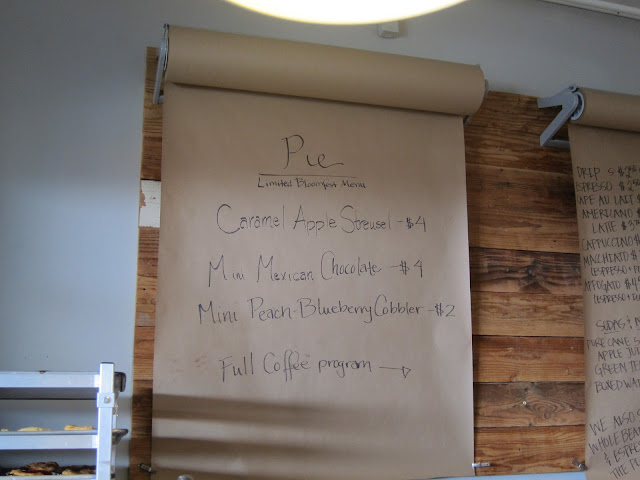 Pie
Limited Bloomfest Menu
Caramel Apple Streusel - $4
Mini Mexican Chocolate - $4
Mini Peach-Blueberry Cobbler - $2
Full Coffee program
DRIP
ESPRESSO
CAFE AU LAIT
AMERICANO
LATTE
CAPPUCCINO
MACCHIATO
(ESPRESSO +
AFFOGATO
(ESPRESSO +
SODAS +
PURE CANE
APPLE
GREEN TEA
BOXED WATER
WE ALSO
WHOLE BEAN
& ESPRESSO
THE